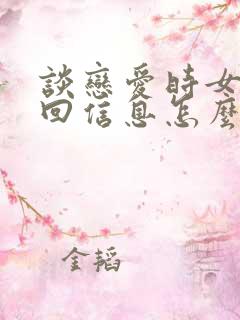 談戀愛時女
回信息怎麼
金韬